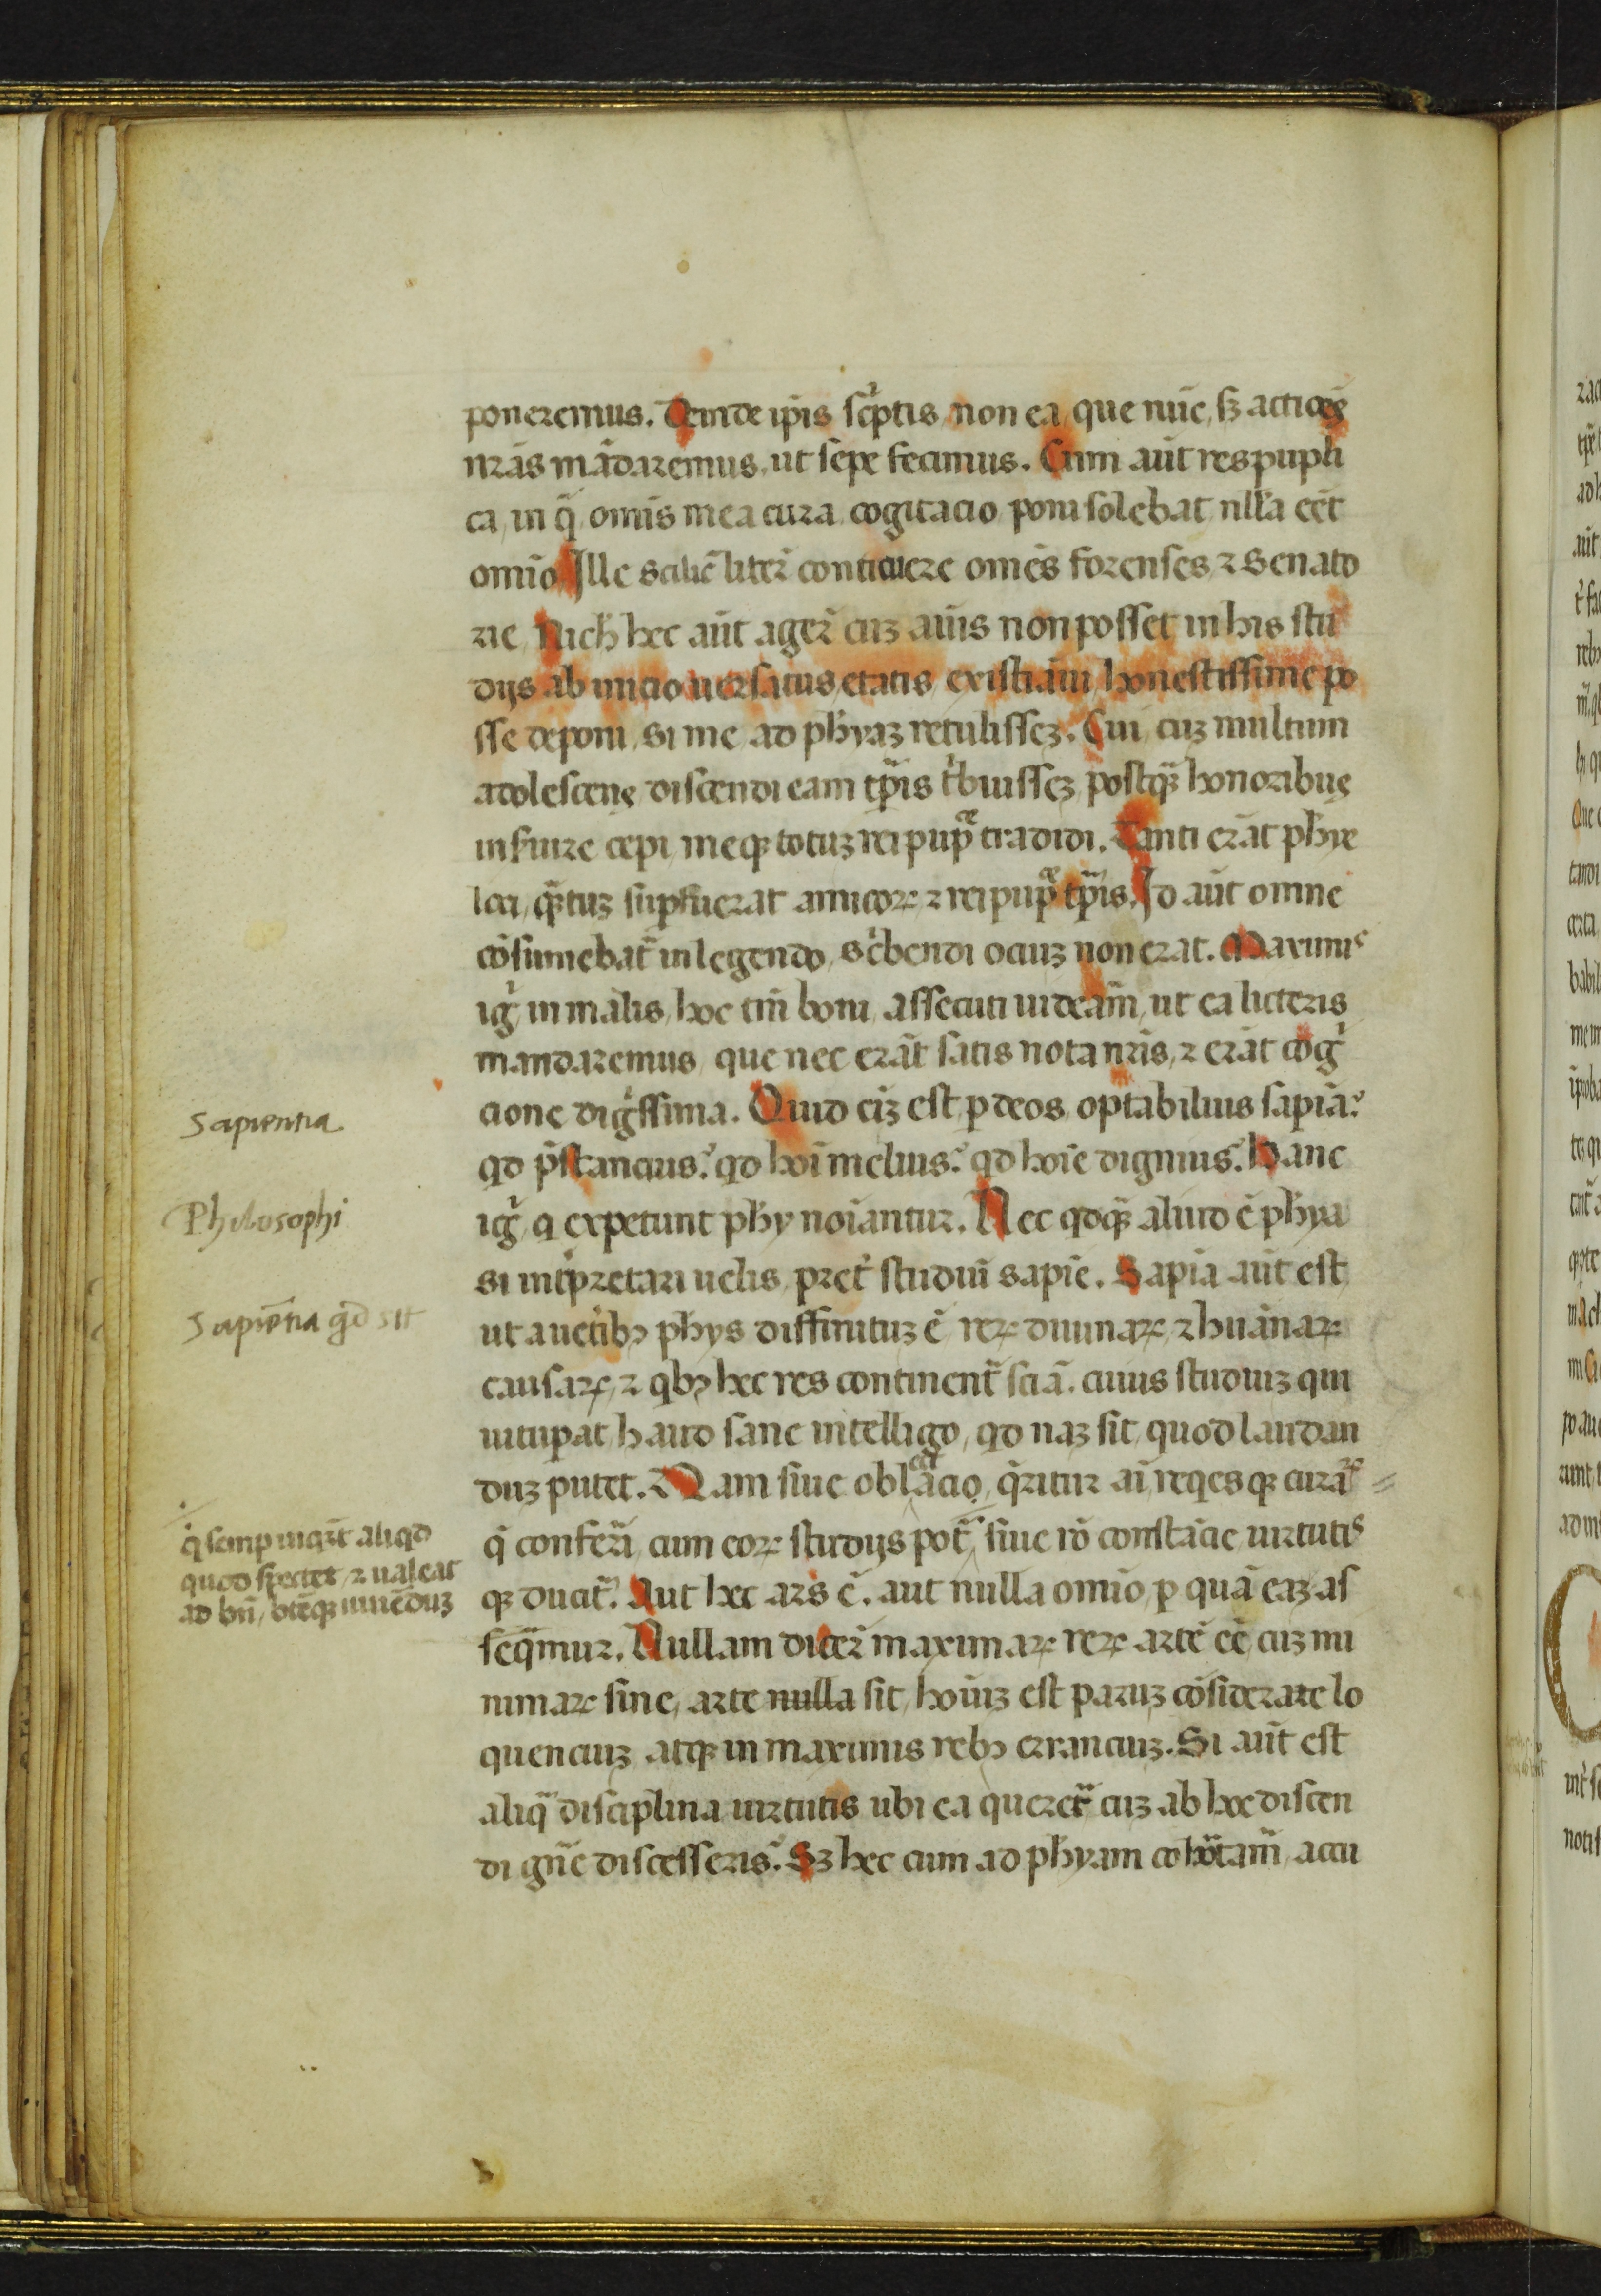 poneremus. Deinde ip̄is sc̔ptis non ea que nūc, sꝫ actiōēs
nr̄as mādaremus, ut sepe fecimus. Cum aūt respupli
ca, in q̄ om̄is mea cura cogitacio poni solebat nll̄a eēt
om̄io Ille scilic̄ liter̄ conticuere om̄es forenses ⁊ Senato
rie Nich̄ hec aūt ager̄ cuꝫ aīus non posset in his stu
dijs ab inicio uersatus etatis existiāui honestissime po
sse deponi, si me ad ph̄yaꝫ retulisseꝫ. Cui cuꝫ multum
adolescens discendi eam tp̄is t̔buisseꝫ postq̄ꝫ honoribus
inseruire cepi meqꝫ totuꝫ rei pup̄ce tradidi. Tanti erāt ph̄ie
loci, qāꝫtuꝫ suꝑfuerat amicoꝝ ⁊ rei pup̄ce tp̄is. Id aūt omne
cōsumebat̄ in legendo, sc̔bendi ociuꝫ non erat. Maximis
ig̔ in malis, hoc tm̄ boni assecuti uideam̄, ut ea licteris
mandaremus que nec erāt satis nota nr̄is, ⁊ erāt cog̔
cione dig̔ssima. Quid eiꝫ est ꝑ deos optabilius sapiā?
qd p̄stancius? qd hoī melius? qd hoīe dignius? Hanc
ig̔ q expetunt ph̄y noīantur. Nec qdqꝫ aliud ē ph̄ya
si int̔pretari uelis, pret̔ studiū sapīe. Sapīa aūt est
ut auct̔ibꝫ ph̄ys diffinituꝫ ē reꝝ diuinaꝝ ⁊ huānaꝝ
causaꝝ, ⁊ qbꝫ hec res continent̄ sciā. cuius studiuꝫ qui
uituꝑat, haud sane intelligo, qd naꝫ sit, quod laudan
duꝫ putet. Nam siue oblectacio, q̄ritur aī, req̔esqꝫ curaꝝ
q̄ conferī cum eoꝝ studijs pot̄, siue rō constācie uirtutis
qꝫ ducit̄. Aut hec ars ē. aut nulla om̄io, ꝑ quā eaꝫ as
seq̄mur. Nullam dicer̄ maximaꝝ reꝝ artē eē, cuꝫ mi
nimaꝝ sine arte nulla sit, hoīuꝫ est paruꝫ cōsiderate lo
quenciuꝫ atqꝫ in maximis rebꝫ erranciuꝫ. Si aūt est
aliq̄ disciplina uirtutis ubi ea queret̄ cuꝫ ab hoc discen
di gn̄e discesseris? Sꝫ hec cum ad ph̄yam cohōrtam̄, accu
Sapientia
Philosophi
Sapiētia qd sit
q̄ semꝑ inq̔rit aliqd
quod spectet, ⁊ ualeat
ad bn̄, btēqꝫ uiuēduꝫ